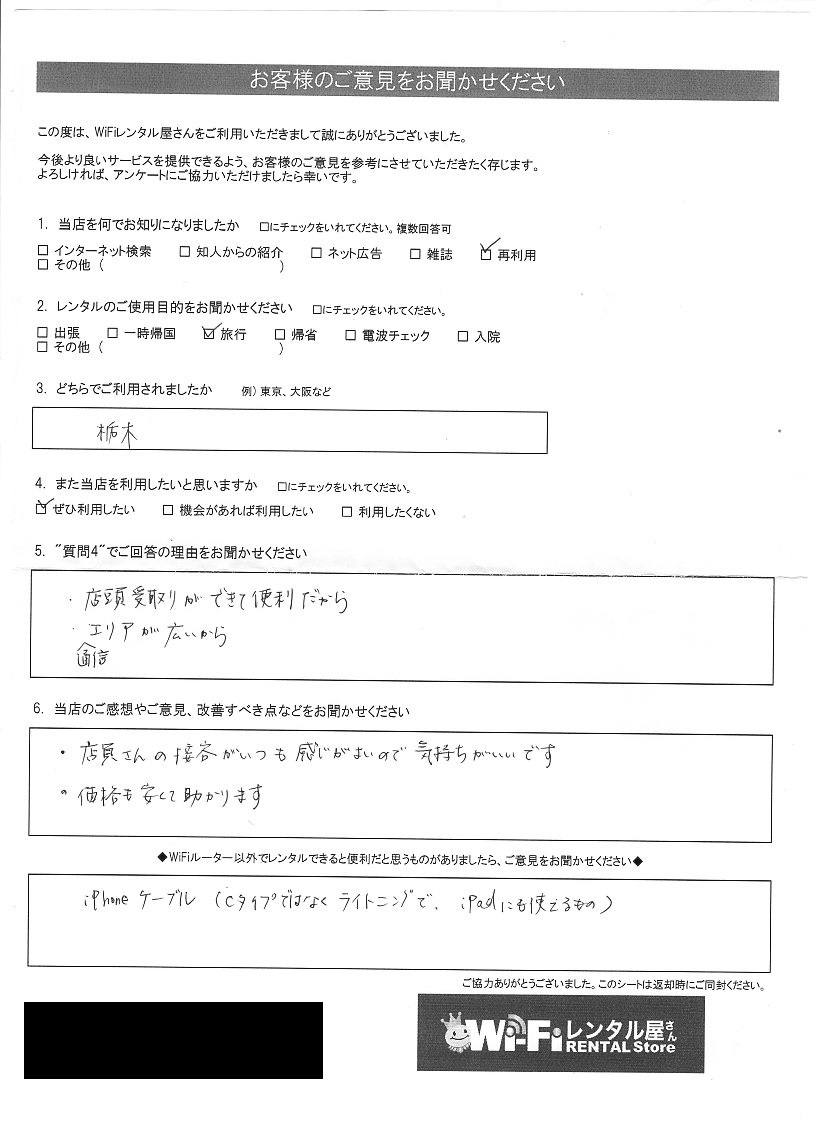 お客様のご意見をお聞かせください
この度は、WiFiレンタル屋さんをご利用いただきまして誠にありがとうございました。
今後より良いサービスを提供できるよう、お客様のご意見を参考にさせていただきたく存じます。
よろしければ、アンケートにご協力いただけましたら幸いです。
1. 当店を何でお知りになりましたか □にチェックをいれてください。複数回答可
□ インターネット検索 □ 知人からの紹介 □ ネット広告 □ 雑誌 ☑ 再利用
□ その他 ( )
2. レンタルのご使用目的をお聞かせください □にチェックをいれてください。
□ 出張 □ 一時帰国 ☑ 旅行 □ 帰省 □ 電波チェック □ 入院
□ その他 ( )
3. どちらでご利用されましたか 例) 東京、大阪など
栃木
4. また当店を利用したいと思いますか □にチェックをいれてください。
☑ ぜひ利用したい □ 機会があれば利用したい □ 利用したくない
5. "質問4"でご回答の理由をお聞かせください
・店頭受取りができて便利だから
・エリアが広いから
通信
6. 当店のご感想やご意見、改善すべき点などをお聞かせください
・店員さんの接客がいつも感じがよいので気持ちがいいです
・価格も安くて助かります
◆WiFiルーター以外でレンタルできると便利だと思うものがありましたら、ご意見をお聞かせください◆
iPhoneケーブル (Cタイプではなくライトニングで、iPadにも使えるもの)
ご協力ありがとうございました。このシートは返却時にご同封ください。
Wi-Fiレンタル屋さん
RENTAL Store